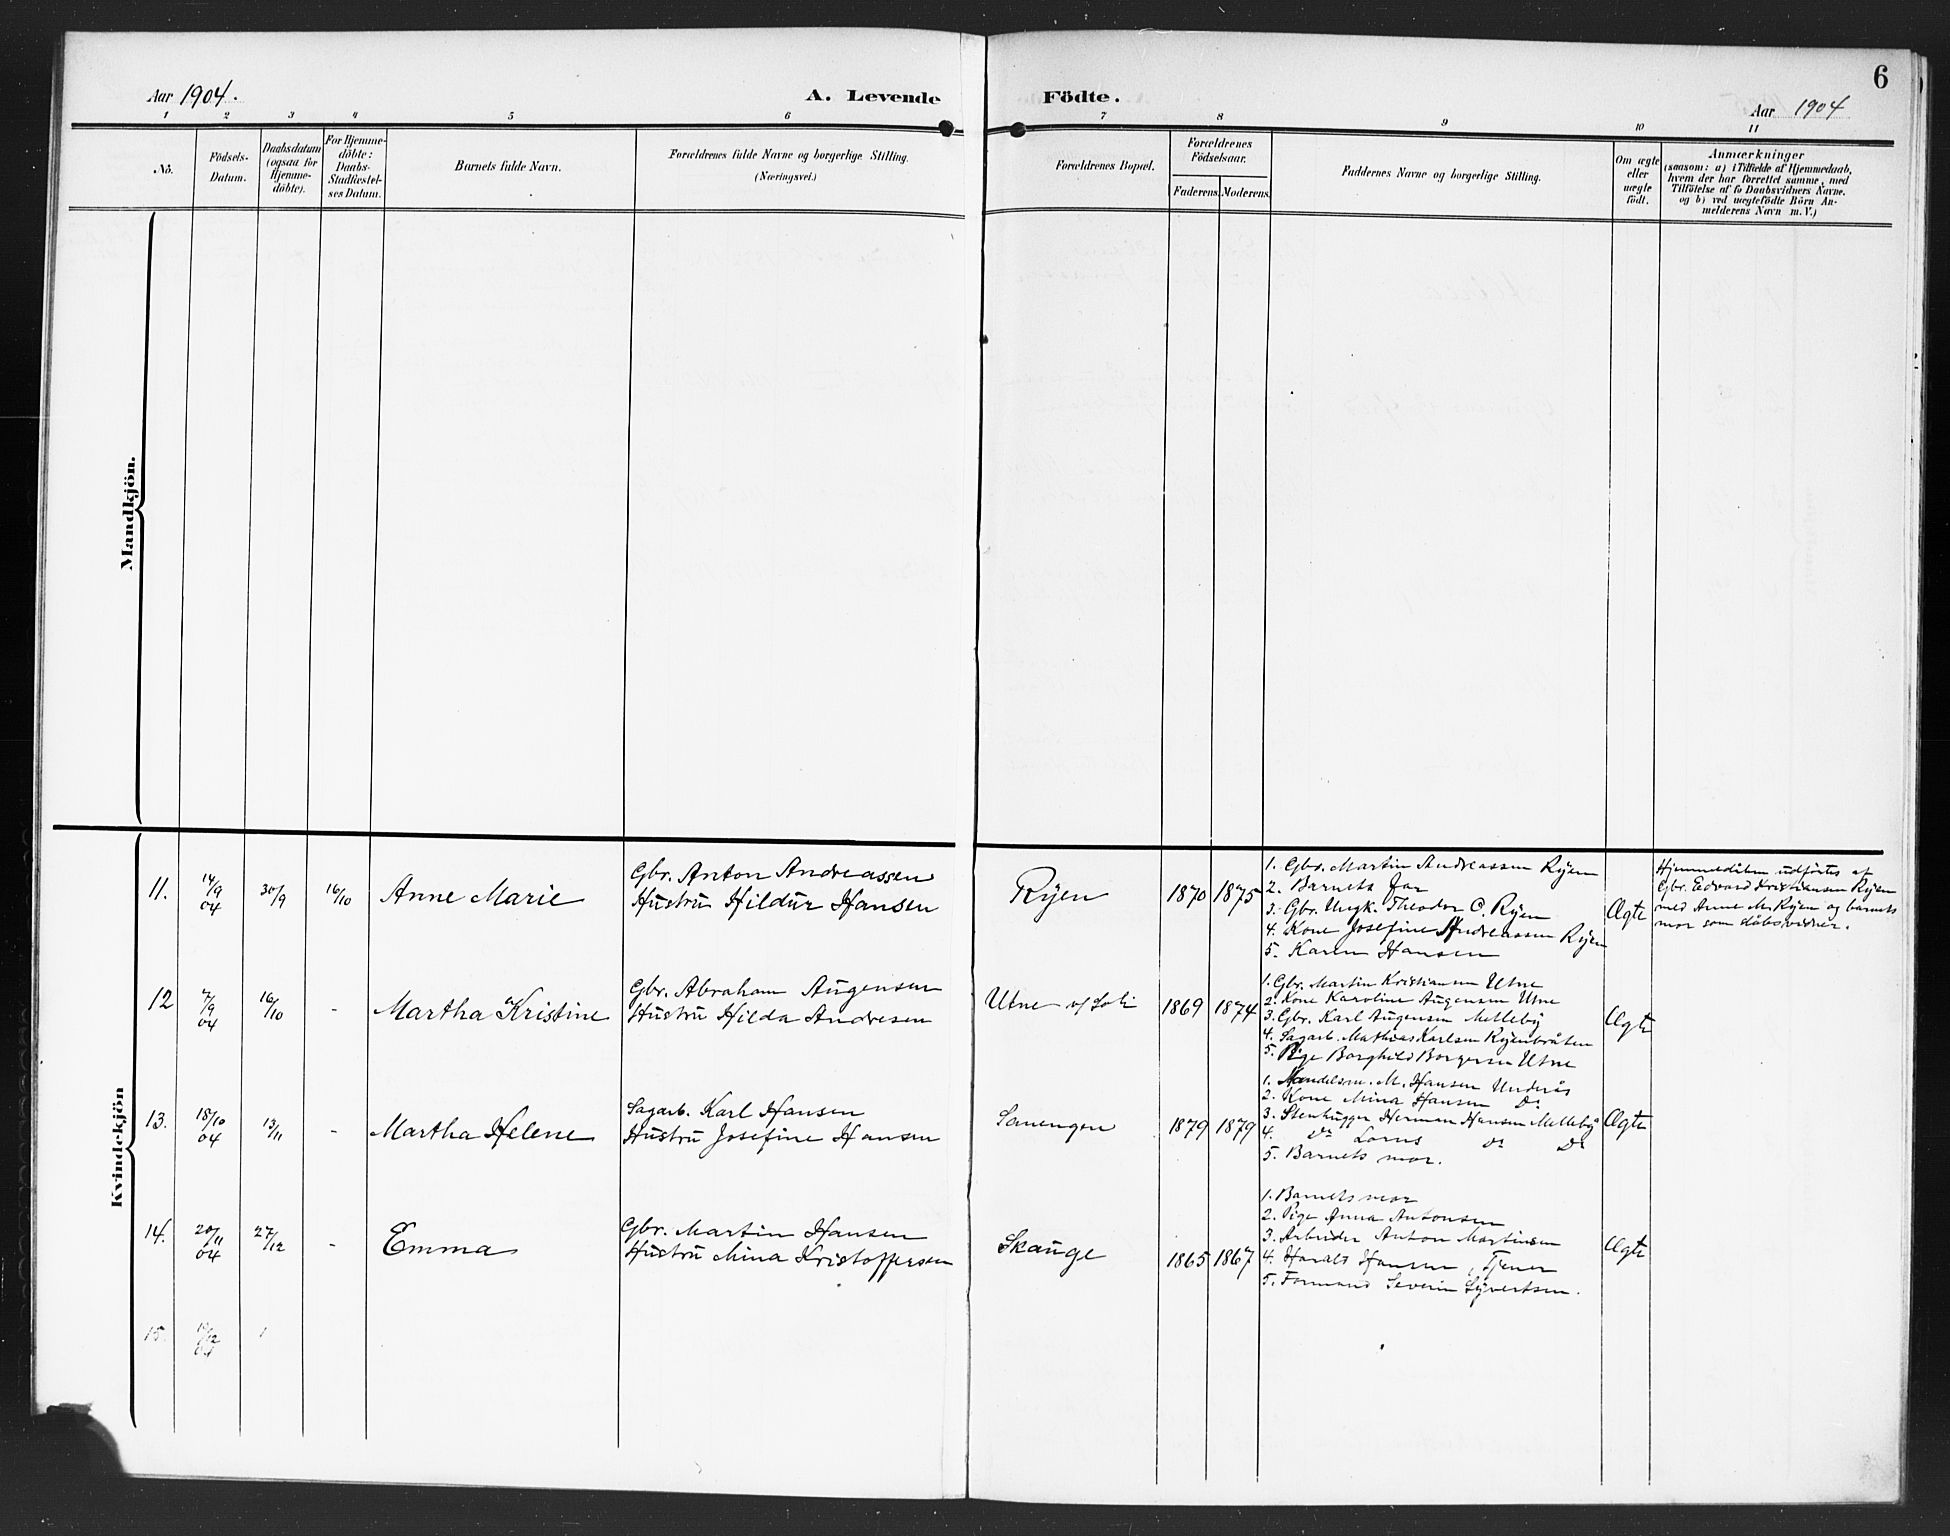 6
Aar 1904. A. Levende Födte. Aar 1904
1 2 3 4 5 6 7 8 9 10 11
No.
Födsels-
Datum.
Daabsdatum
(ogsaa for
Hjemme-
döbte).
For Hjemme-
döbte:
Daabs-
Stadfæstel-
ses Datum.
Barnets fulde Navn.
Forældrenes fulde Navne og borgerlige Stilling.
(Næringsvei.)
Forældrenes Bopæl.
Forældrenes
Födselsaar.
Faderens. Moderens.
Faddernes Navne og borgerlige Stilling.
Om ægte
eller
uægte
födt.
Anmærkninger
(saasom: a) i Tilfælde af Hjemmedaab,
hvem der har forrettet samme, med
Tilföielse af to Daabsvidners Navne.
og b) ved uægtefödte Börn An-
melderens Navn m. V.)
Mandkjön.
Kvindekjön
11.
14/9
04
30/9
16/10
Anne Marie
Gbr. Anton Andreassen
Hustru Hildur Hansen
Ryen
1870 1875
1. Gbr. Martin Andreassen Ryen
2. Barnets far
3. Gbr. Ungk. Theodor C. Ryen
4. Kone Josefine Andreassen Ryen
5. Karen Hansen
Ægte
Hjemmedåben udførtes af
Gbr. Edvard Kristiansen Ryen
med Anne M. Ryen og barnets
mor som dåbsvidner.
12
7/9
04
16/10
-
Martha Kristine
Gbr. Abraham Augensen
Hustru Hilda Andresen
Utne v/ Soli
1869 1874
1. Gbr. Martin Kristiansen Utne
2. Kone Karoline Augensen Utne
3. Gbr. Karl Augensen Melleby
4. Sagarb. Mathias Karlsen Ryenbråten
5. Pige Borghild Borgersen Utne
Ægte
13.
18/10
04
13/11
-
Martha Helene
Sagarb. Karl Hansen
Hustru Josefine Hansen
Sanengen
1879 1879
1. Handelsm. M. Hansen Underås
2. Kone Mina Hansen Do
3. Stenhugger Herman Hansen Melleby
4. do Lorns do Do
5. Barnets mor.
Ægte
14.
20/11
04
27/12
-
Emma
Gbr. Martin Hansen
Hustru Mina Kristoffersen
Skauge
1865 1867
1. Barnets mor
2. Pige Anna Antonsen
3. Arbeider Anton Martinsen
4. Harald Hansen, Tjener
5. Formand Severin Syvertsen.
Ægte
15.